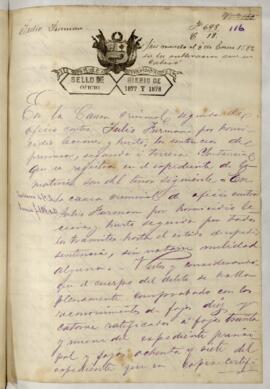 Julio Surman
Fs 698 116
C. 18.
SELLO DE OFICIO
BIENIO DE 1877 Y 1878
En la Causa Criminal seguida de
oficio contra Julio Surman por homi
cidio lesiones y hurto, las sentencias de
primera, segunda y tercera
que se registra en el expediente de
materia son del tenor siguiente. En
la causa criminal de oficio contra
Julio Surman por homicidio le
siones y hurto seguida por todos
los trámites hasta el estado de
sentencia, sin notarse nulidad
alguna. Vistos y considerando
que el cuerpo del delito se halla
plenamente comprobado con los
reconocimientos de fojas diez y
catorce ratificados a fojas treinta
y nueve del expediente princi
pal y fojas ochenta y siete del
expediente que en copia certifi